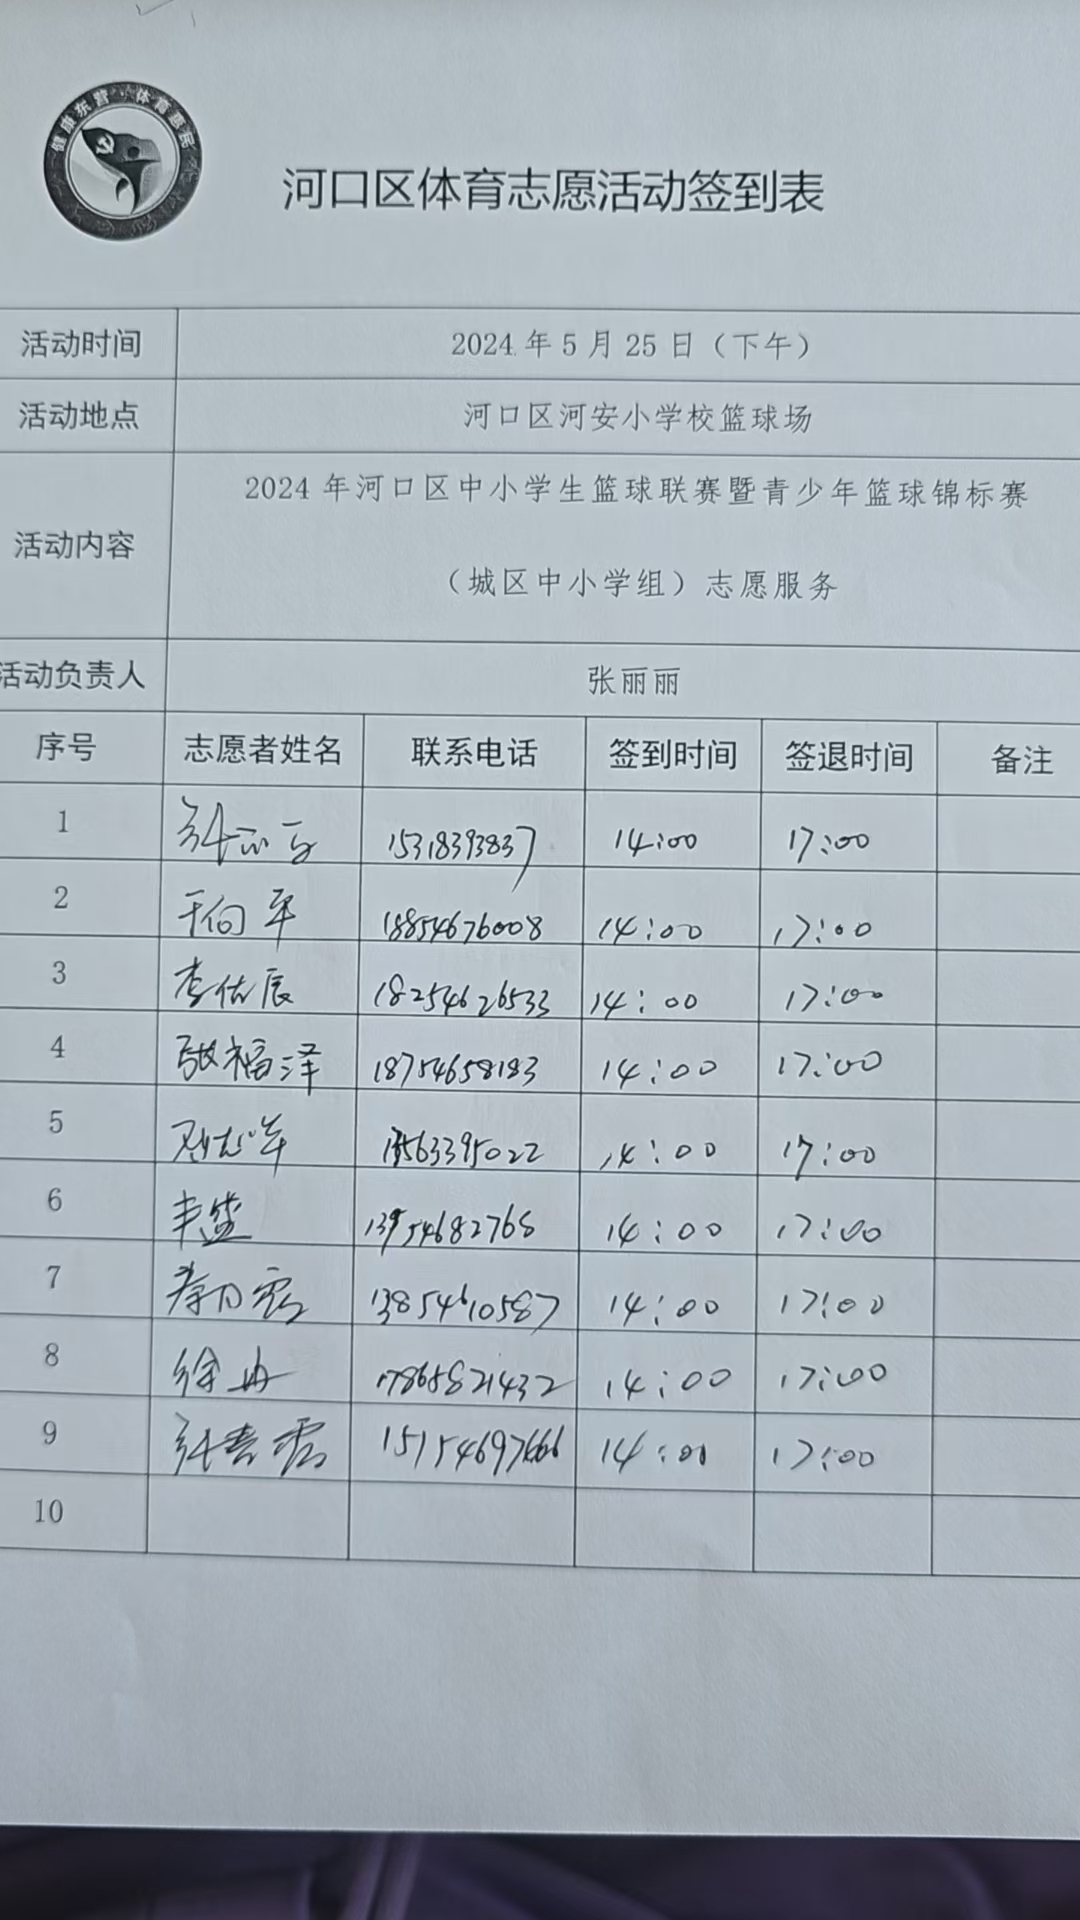 健康东营·体育惠民
河口区体育志愿活动签到表
活动时间 2024年5月25日（下午）
活动地点 河口区河安小学校篮球场
活动内容 2024年河口区中小学生篮球联赛暨青少年篮球锦标赛
（城区中小学组）志愿服务
活动负责人 张丽丽
序号 志愿者姓名 联系电话 签到时间 签退时间 备注
1 15318393837 14:00 17:00
2 于向平 18854676008 14:00 17:00
3 李佑辰 18254626533 14:00 17:00
4 张福泽 18754658183 14:00 17:00
5 13563395022 14:00 17:00
6 13954682768 14:00 17:00
7 13854610587 14:00 17:00
8 徐冉 17865821432 14:00 17:00
9 15154697666 14:00 17:00
10